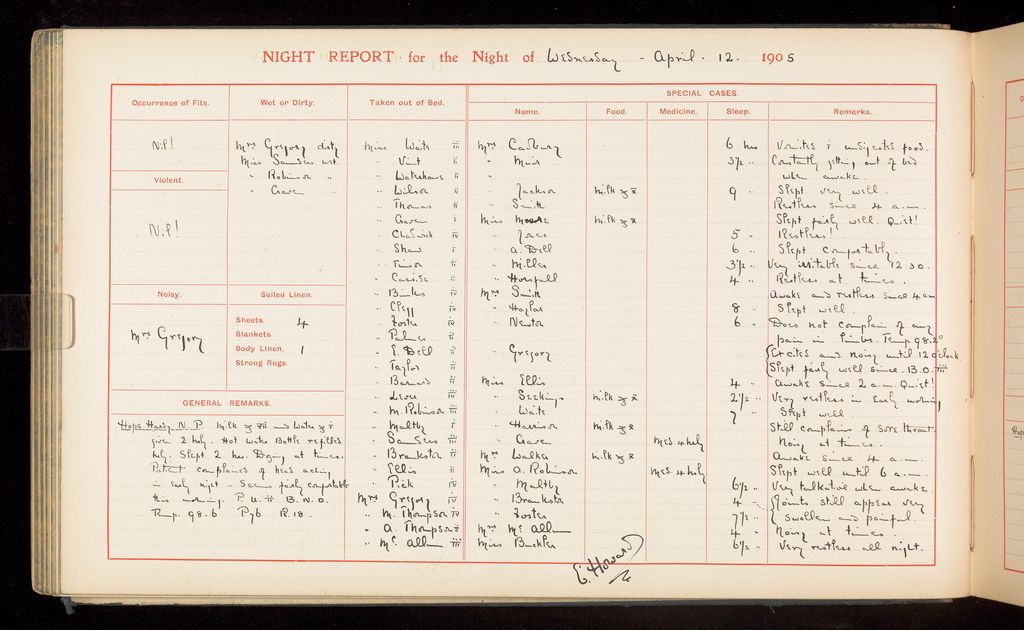 NIGHT REPORT for the Night of Wednesday - April. 12. 1905
Occurrence of Fits.
Nil!
Violent.
Nil!
Noisy.
Mrs Gregory
Wet or Dirty.
Mrs Gregory dirty
Miss Saunders wet.
" Robinson "
" Craven "
Soiled Linen.
Sheets. 4
Blankets.
Body Linen. 1
Strong Rugs.
GENERAL REMARKS.
Hope Hardy N. P. Milk and Water
given 2 hrly. Hot Water Bottle refilled
hrly. Slept 2 hrs. Dozing at times.
Patient complains of head aching
in early night - Seems fairly comfortable
this morning. P. U. ii B. N. O.
Temp. 98.6 P76 R. 18.
Taken out of Bed.
Miss Waite iii
" Vint ii
" Waterhouse ii
" Wilson ii
" Thomas ii
" Craven i
" Chadwick iv
" Shaw i
" iii
" iii
" Binks iv
" Clegg iv
" Foster iv
" Palmer ii
" E. Dell iii
" Taylor iii
" Barnard ii
" Lever iii
" M. Robinson iii
" Maltby i
" Saunders iii
" Brankston iv
" Ellis ii
" Pick iv
Mrs Gregory iv
" M. Thompson iv
" A. Thompson ii
" Mc Allum iii
SPECIAL CASES.
Name. Food. Medicine. Sleep. Remarks.
Mrs Cadbury 6 hrs Vomited undigested food.
" Muir 3½ " Constantly getting out of bed
" when awake.
" Jackson Milk 9 " Slept very well.
" Smith Restless since 4 a.m.
Miss Moore Milk Slept fairly well. Quiet!
" Jones 5 " Restless!
" A. Dell 6 " Slept comfortably.
" Miller 3½ " Very irritable since 12.30.
" Horsfall 4 " Restless at times.
Mrs Smith Awake and restless since 4 am
" Naylor 8 " Slept well.
" Newton 6 " Does not complain of any
pain in limbs. Temp 98.2°
" Gregory Excited and noisy until 12 o'clock
Slept fairly well since. B.O. iii
Miss Ellis 4 " Awake since 2 a.m. Quiet!
" Seekings Milk 2½ " Very restless in early morning
" Waite 7 " Slept well.
" Harrison Milk Still complains of sore throat.
" Craven Med 4 hrly Noisy at times.
Mrs Walker Milk Awake since 4 a.m.
Miss A. Robinson Med 4 hrly Slept well until 6 a.m.
" Maltby 6½ " Very talkative when awake.
" Brankston 4 " Joints still appear very
" Foster 7½ " swollen and painful.
Mrs Mc Allum 4 " Noisy at times.
Miss Buckler 6½ " Very restless all night.
E. Howard